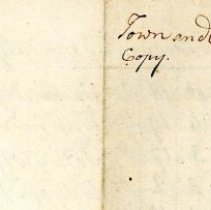 Town and
Copy.